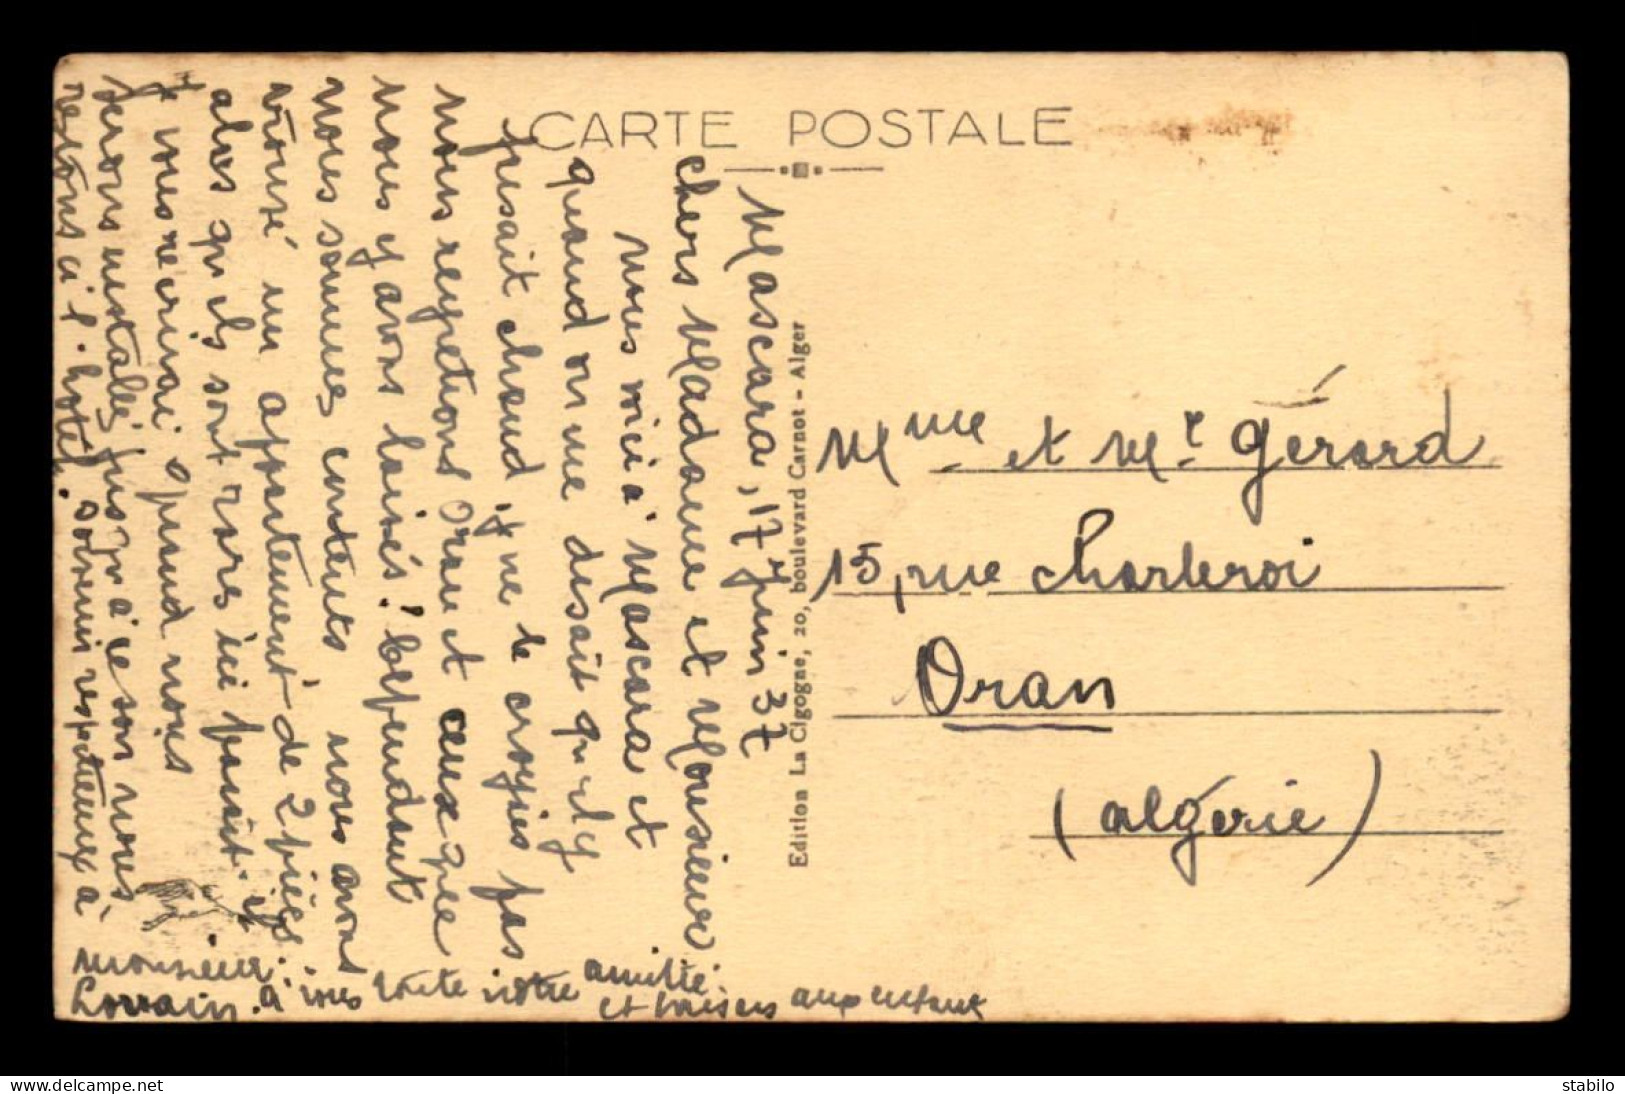 CARTE POSTALE
Mascara, 17 juin 37
chers Madame et Monsieur
nous voici à Mascara et
quand on me disait qu'il y
faisait chaud, je ne le croyais pas
nous regretions Oran et ceux que
nous y avons laissés! Cependant
nous sommes contents, nous avons
trouvé un appartement de 2 pièces
alors qu'ils sont rares ici paraît-il
je vous écrirai quand nous
serons installés jusqu'à ce son nous
restons à l'hotel. souvenir respectueux à
monsieur
Lorrain. à vous toute notre amitié.
et baisers aux enfants
Edition La Cigogne, 20, boulevard Carnot - Alger
Mme et Mr Gérard
15, rue Charleroi
Oran
(algérie)
stabilo